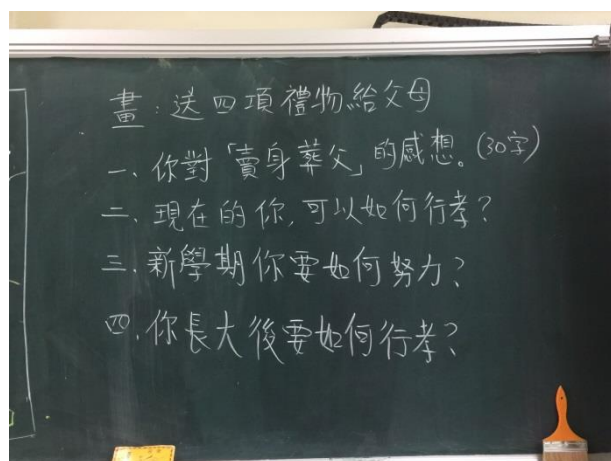 畫:送四項禮物給父母
一、你對「賣身葬父」的感想。(30字)
二、現在的你,可以如何行孝?
三、新學期你要如何努力?
四、你長大後要如何行孝?